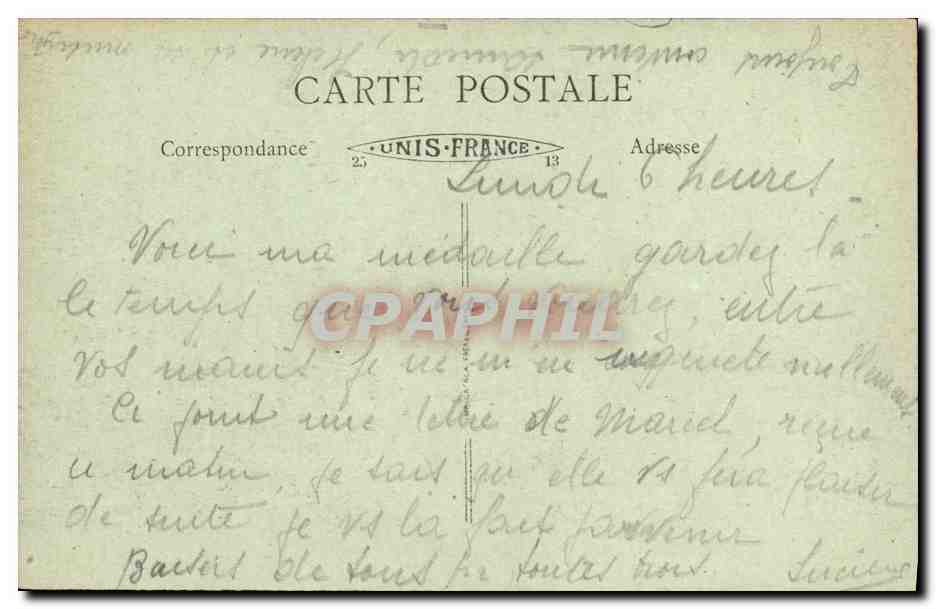 CARTE POSTALE
Correspondance
UNIS·FRANCE·
Adresse
25
13
Lundi 6 heures
Voici ma médaille gardez la
le temps que vous voudrez, entre
vos mains je ne m'en inquiete nullement.
Ci joint une lettre de Marcel, reçue
ce matin, je sais qu'elle vs fera plaisir
de suite je vs la fait parvenir
Baisers de tous pr toutes trois. Lucienne
CPAPHIL